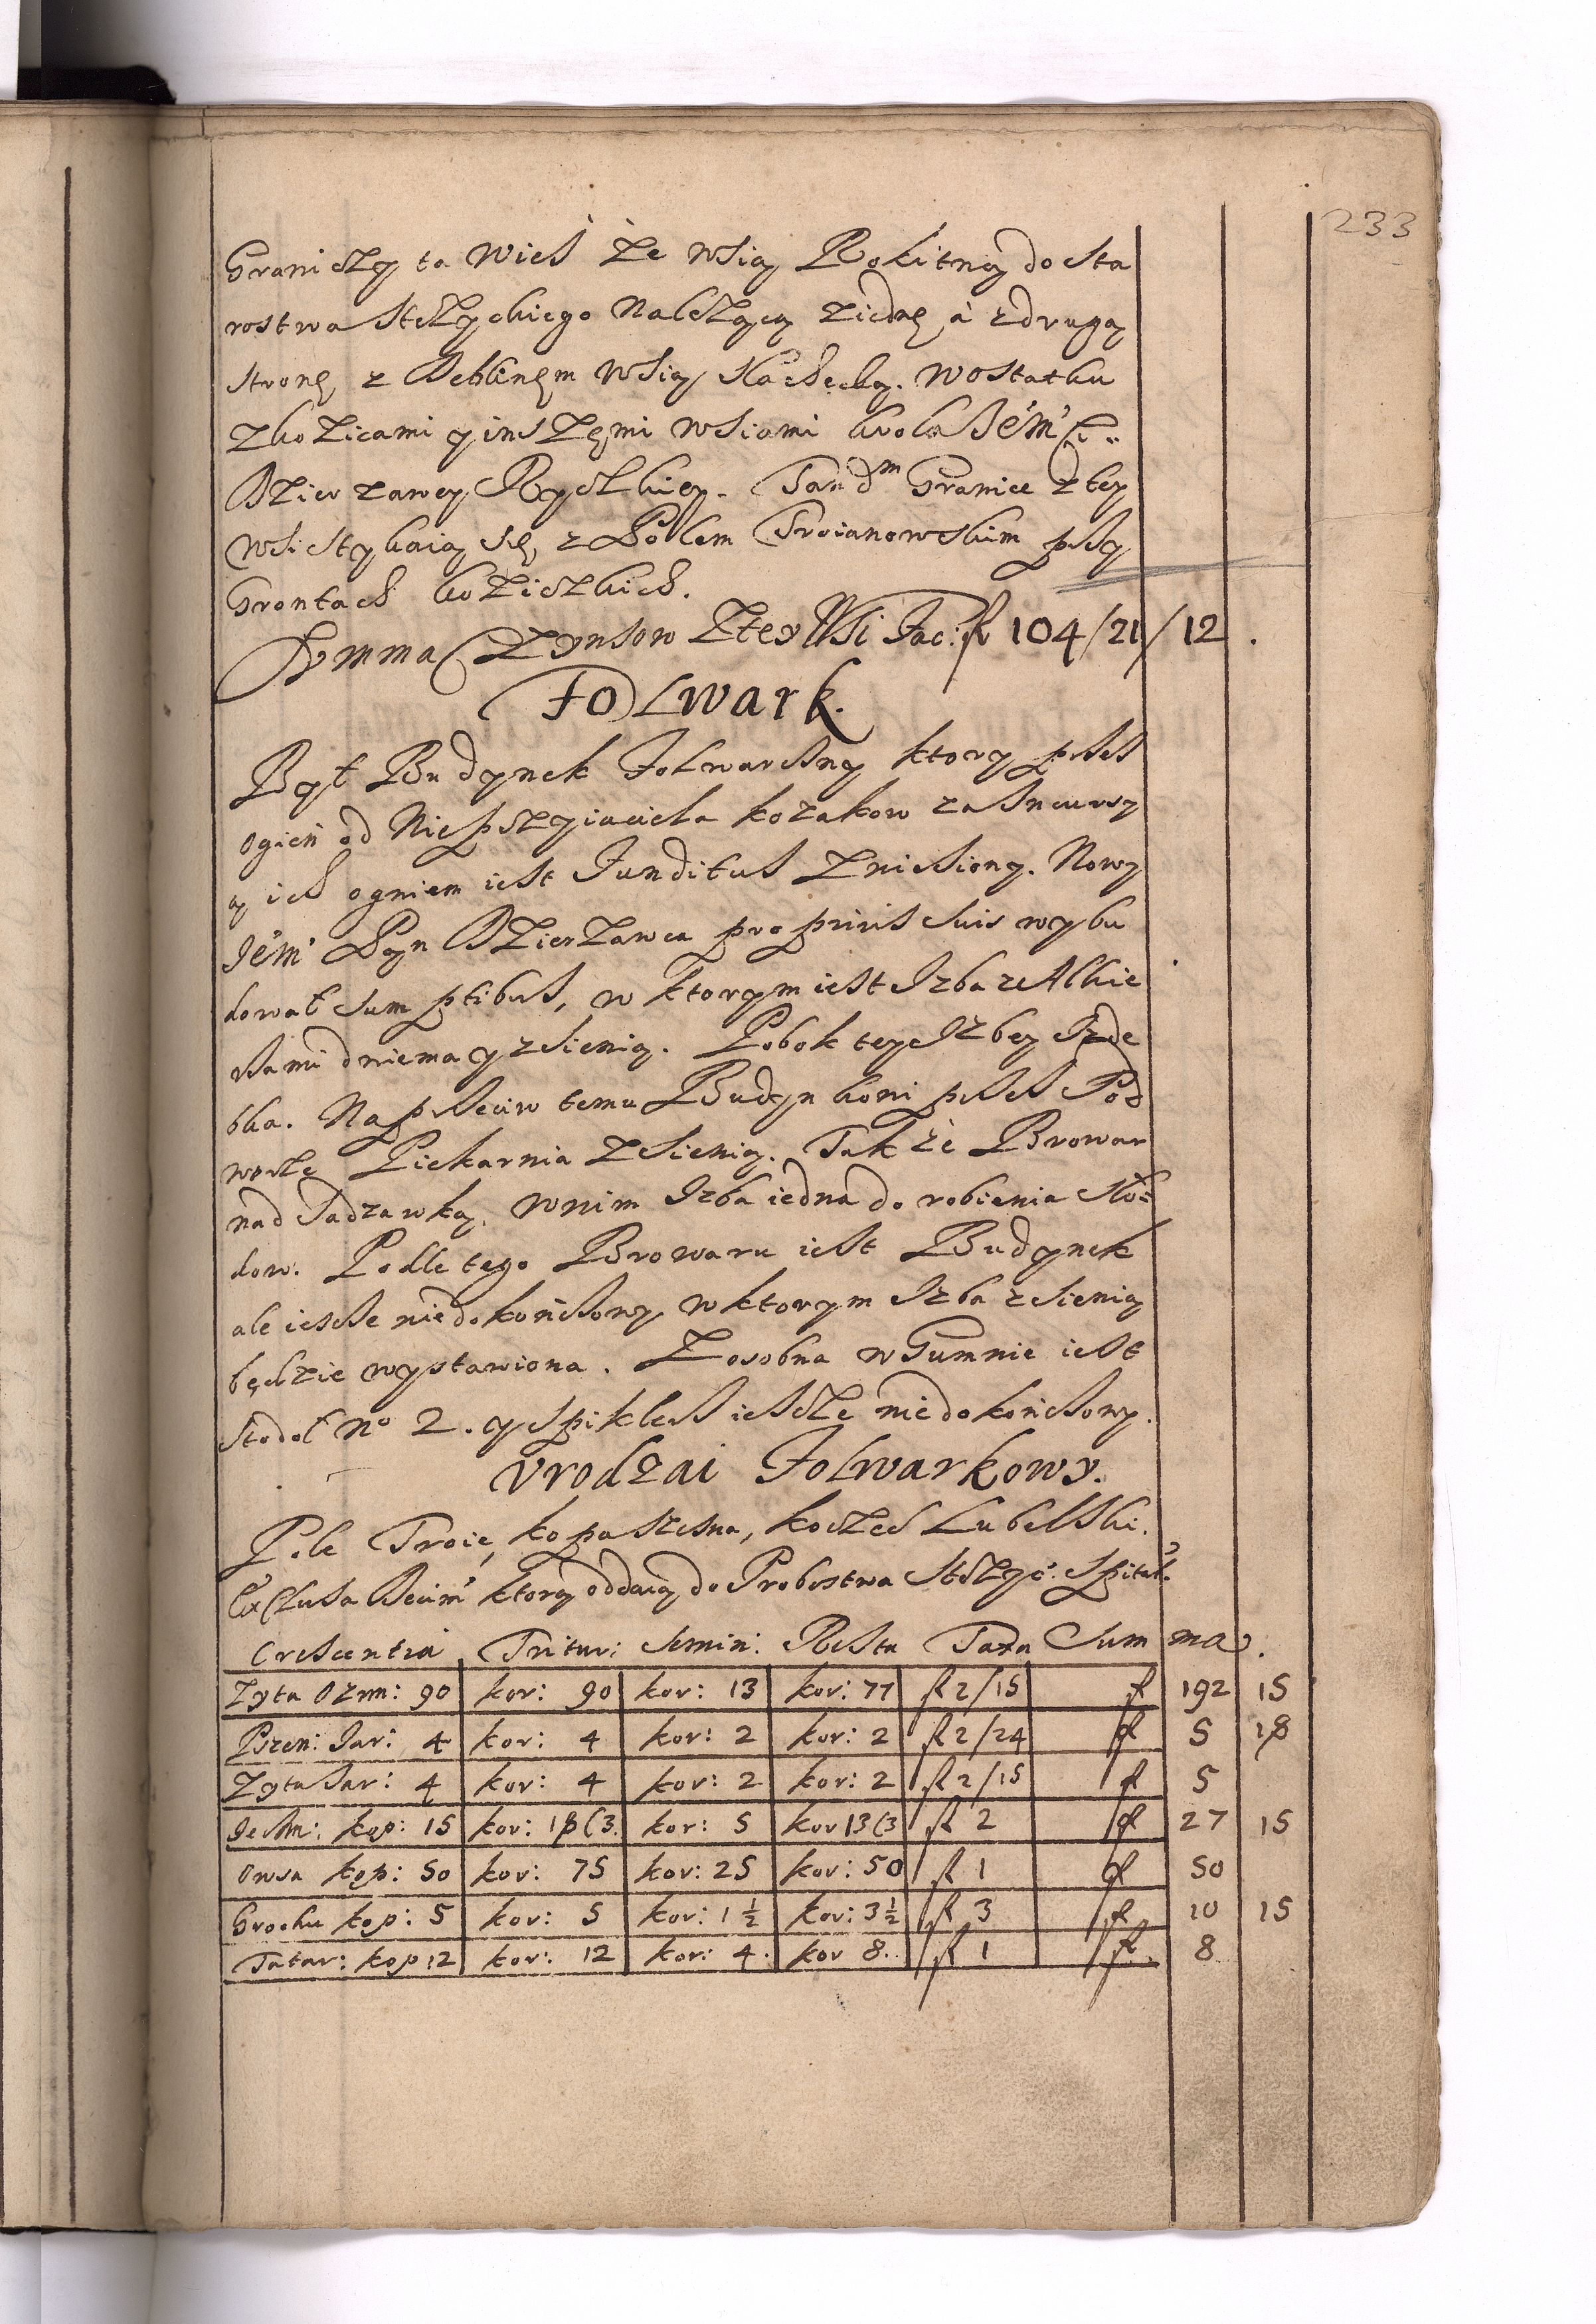 233
Graniczy ta Wieś Ze Wsią Rokitną do Sta
rostwa Stęzyckiego Należącą z iedne a z drugą
stronę, z Deblinęm Wsią slachecką. W ostatku
z koZicami y inszęmi Wsiami krola Jem̃ci
Dzierzawey Ryczkiey. Tandm Granice z tey
Wsi stykaią się, z Polem Troianowskim przy
Gruntach koZiczkich.
Summa Czynszow Z tey Wsi Fac: fl 104/21/12.
Folwark.
Był Budynek Folwarczny ktory przez
ogień od Niepszyiaciela kozakow
y ich ogniem iest Funditus Zniesiony. Nowy
Jem̃ Pan Dzierzawca propriis suis wybu
dował sumptibus, w ktorym iest Izba z Alkie
rzami dwiema y z sienią. Pobok tey Izbey Izde
bka. Naprzeciw temu Budynkowi przez Pod
worze Piekarnia Z sienią. Takze Browar
nad Sadzawką, w nim Izba iedna do robienia Sło=
dow. Podle tego Browaru iest Budynek
ale iescze niedokończony w ktorym Izba z sienią
będzie wystawiona. Z osobna w Gumnie iest
Stodoł No 2. y Spiklerz iescze niedokończony.
Vrodzai Folwarkowy.
Pole Troie, kopa szesna, korzec Lubelski.
Exclusa Decim̃ ktorą oddaią do Probostwa Stęzyc: Szpital.
Crescentia Tritur: Semin: Resta Taxa Summa.
Zyta Ozim: 90 kor: 90 kor: 13 kor: 77 fl 2/15 fl 192 15
Pszen: Jar: 4 kor: 4 kor: 2 kor: 2 fl 2/24 fl 5 18
Zyta Jar: 4 kor: 4 kor: 2 kor: 2 fl 2/15 fl 5
Jeczm: kop: 15 kor: 18 (3. kor: 5 kor 13 (3 fl 2 fl 27 15
Owsa kop: 50 kor: 75 kor: 25 kor: 50 fl 1 fl 50
Grochu kop: 5 kor: 5 kor: 1 ½ kor: 3 ½ fl 3 fl 10 15
Tatar: kop 12 kor: 12 kor: 4. kor 8.. fl 1 fl. 8